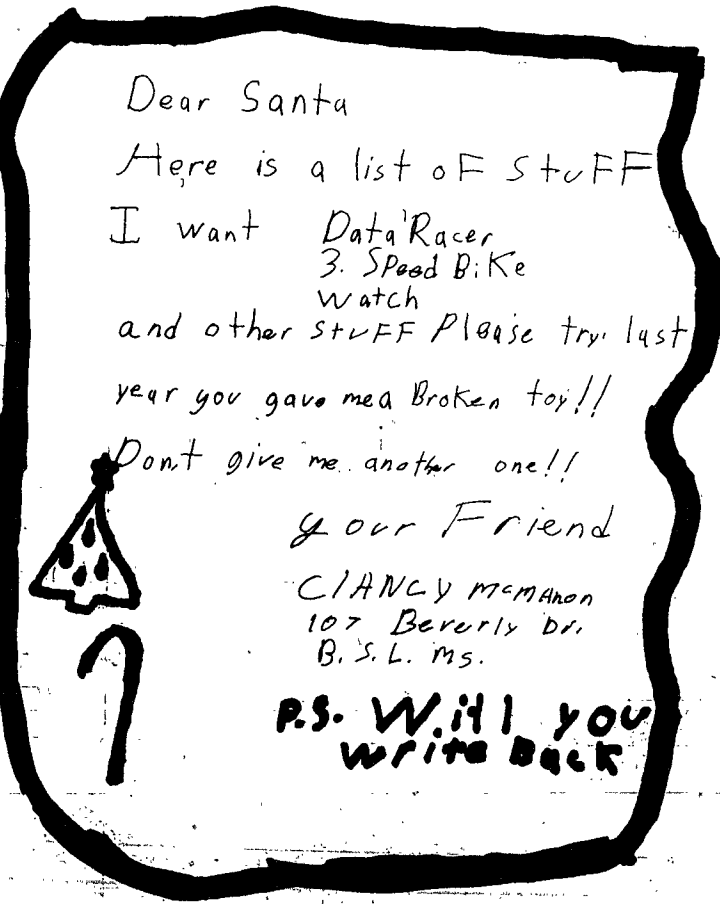 Dear Santa
Here is a list oF StuFF
I want Data Racer
3. SPeed BiKe
watch
and other StuFF Please try. last
year you gave me a BroKen toy!!
Don't give me another one!!
your Friend
ClANCy McmAhon
107 Beverly Dr.
B.S.L. Ms.
P.S. Will you
write Back